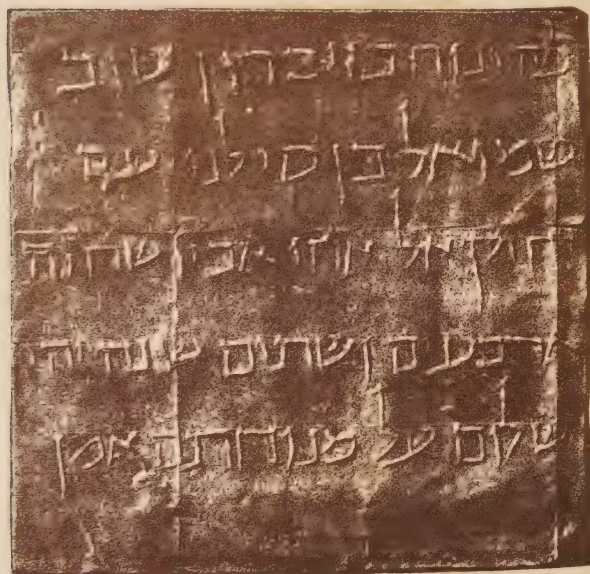 פה ינוח בזיכרון טוב
שמואל בן סילנו עם
אביו שחיה
ארבעים ושתים שנה יהי
שלום על מנוחתם אמן